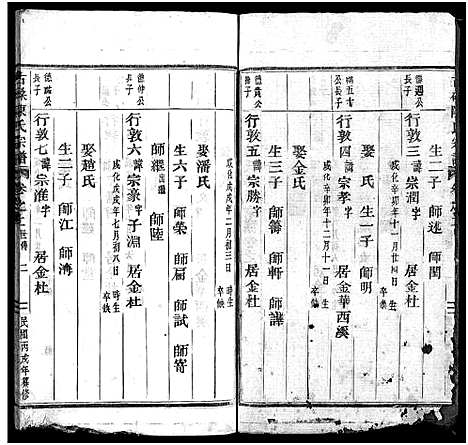 德遇公
長子
行敦三 諱 宗潤 字 居金杜
成化辛卯年十一月廿四日 時生 卒缺
生二子 師述 師閏
行敦四 諱 宗孝 字 居金華西溪
成化辛卯年十二月十一日 時生 卒缺
娶 氏 生一子 師明
長子
行敦五 諱 宗勝 字 居金杜
娶金氏
生三子 師籌 師軒 師譁
成化戊戌年二月初三日 時生 卒缺
娶潘氏
生六子 師榮 師扇 師試 師苛
師纓 師陸
德仲公
長子
行敦六 諱 宗豪 字 子淵 居金杜
成化戊戌年七月初八日 時生 卒缺
娶趙氏
生二子 師江 師濤
德瑞公
長子
行敦七 諱 宗淮 字 居金杜
陳氏宗譜
二
民國丙戌年重修